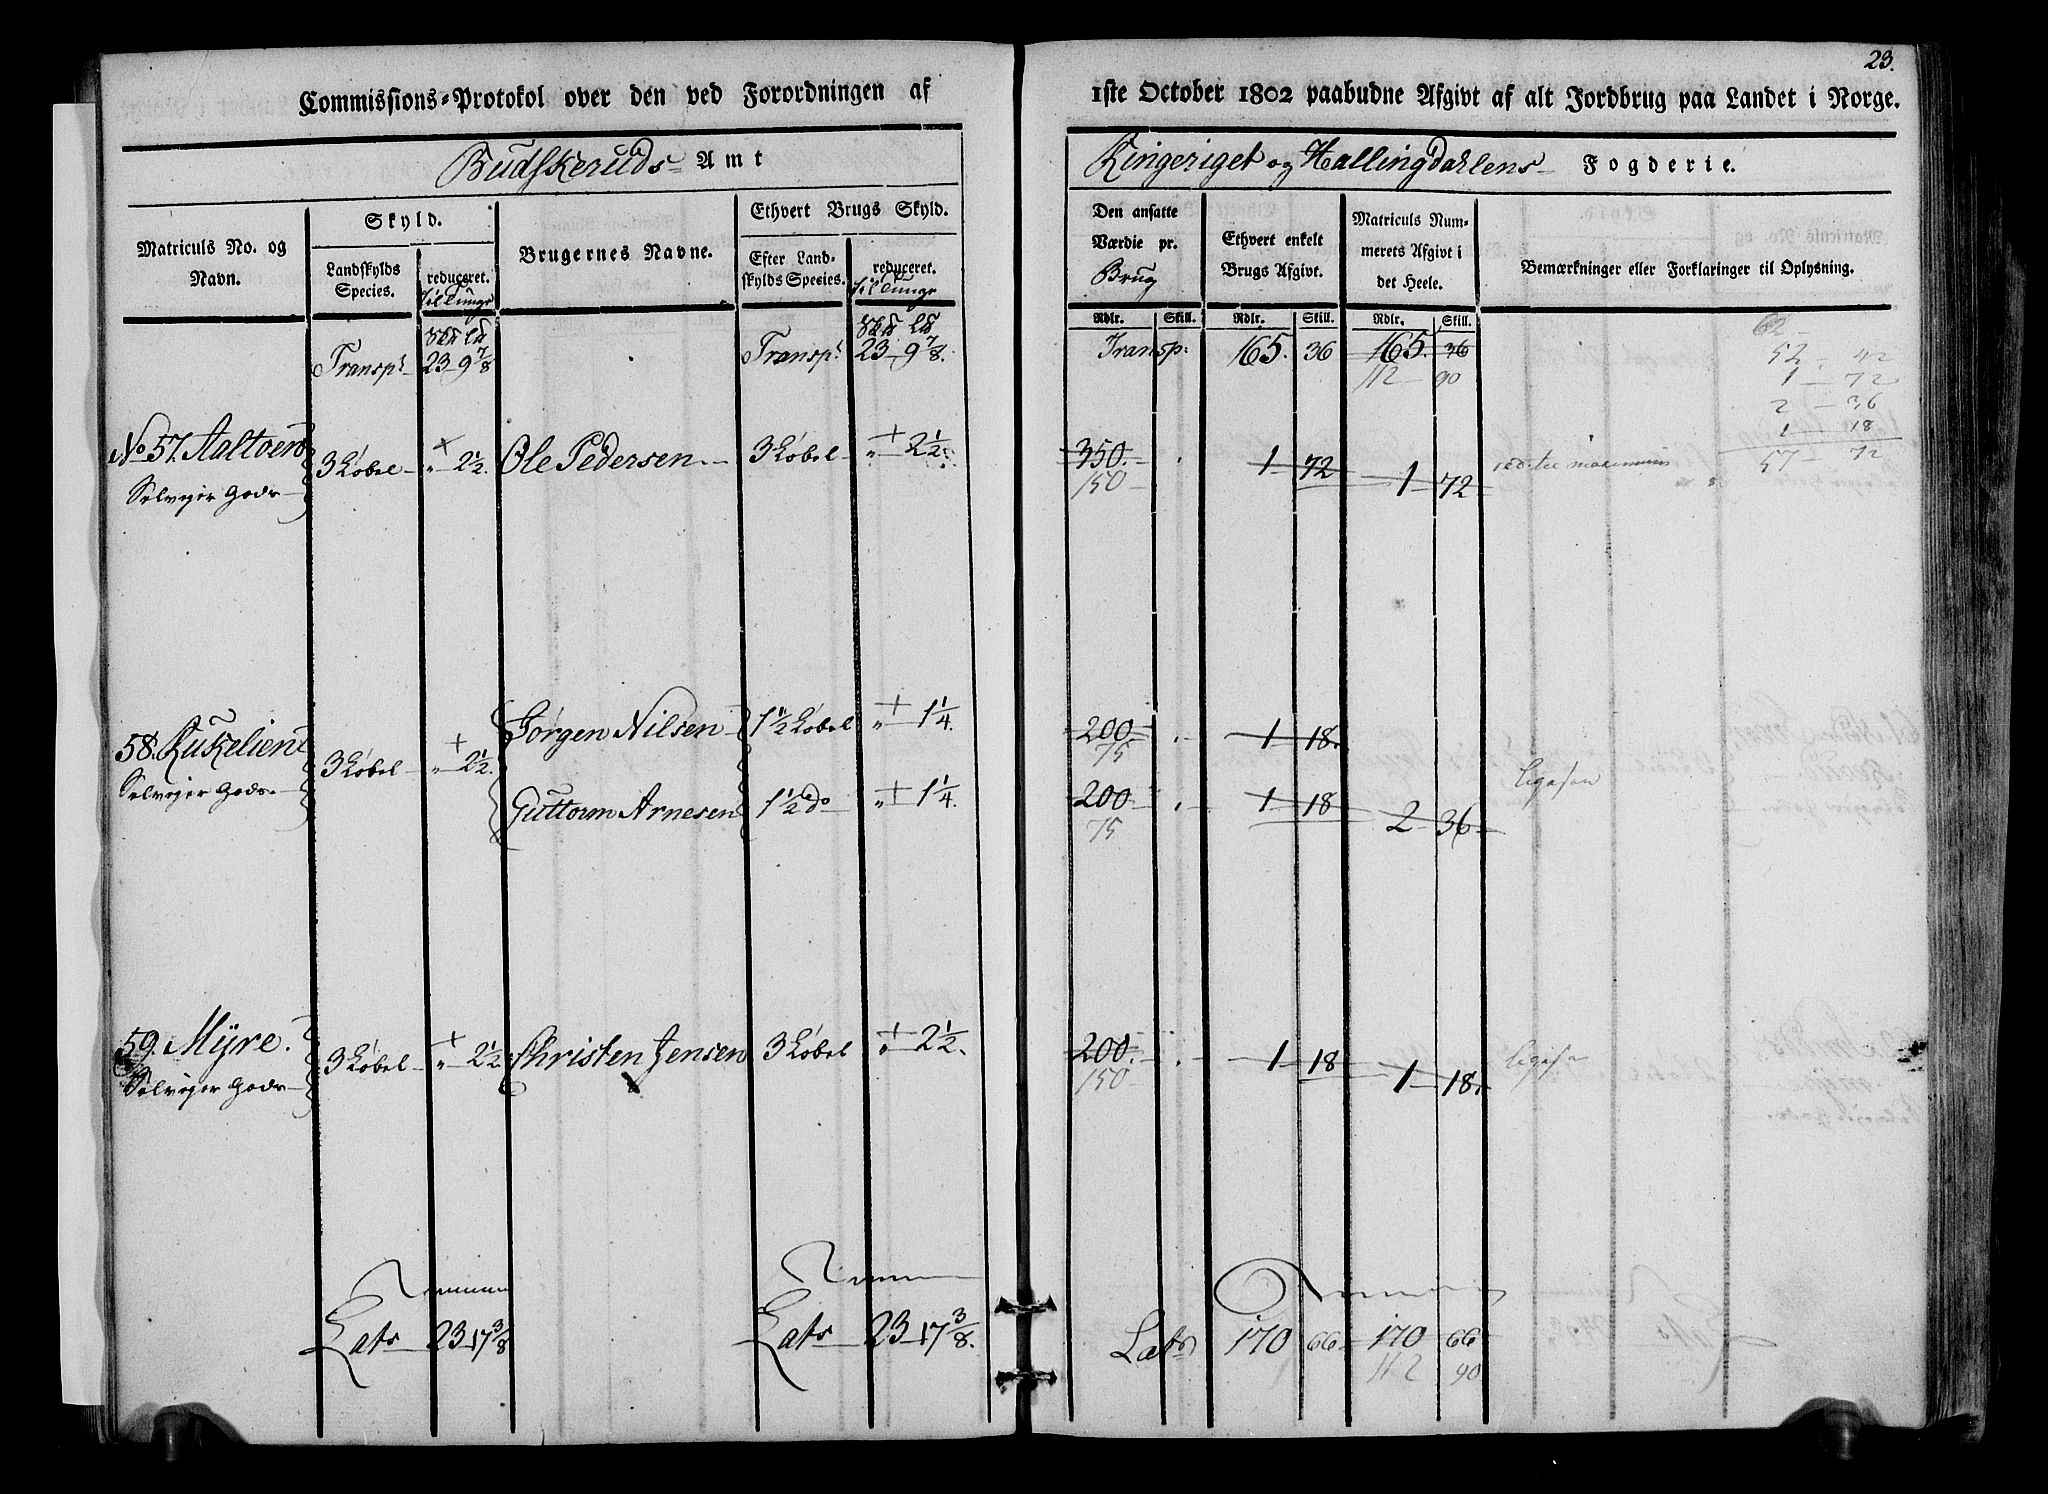 23.
Commissions-Protokol over den ved Forordningen af 1ste October 1802 paabudne Afgivt af alt Jordbrug paa Landet i Norge.
Budskeruds Amt
Ringeriget og Hallingdahlens Fogderie.
Matriculs No. og Navn.
Skyld.
Landskylds Species.
reduceret. til Tunge
Brugernes Navne.
Ethvert Brugs Skyld.
Efter Landskylds Species.
reduceret. til Tunge
Den ansatte Værdie pr. Brug
Ethvert enkelt Brugs Afgivt.
Matriculs Nummerets Afgivt i det Heele.
Bemærkninger eller Forklaringer til Oplysning.
Rdlr. Skill. Rdlr. Skill. Rdlr. Skill.
Transpt 23 - 9 7/8 Transpt 23 - 9 7/8. Transp: 165. 36 165. 36
112 - 90
62 -
52 - 42
1 - 72
2 - 36
1 - 18
57 - 72
No 57. Aaltoen 3 Løbel - " - 2 1/2. Ole Pedersen 3 Løbel - " - 2 1/2. 350. 1 72 1 72
Selvejer Gods 150
58. Kukelien 3 Løbel - " - 2 1/2. Jørgen Nilsen 1 1/2 Løbel " - 1 1/4 200 1 18.
75
Selvejer Gods Guttorm Arnesen 1 1/2 do " - 1 1/4. 200 1 18 2 36
75
59. Myre. 3 Løbel - " - 2 1/2 Christen Jensen 3 Løbel " - 2 1/2. 200. 1 18 1 18.
Selvejer Gods 150
Lats 23 - 17 3/8 Lats 23 - 17 3/8. Lats 170 66 170 66
112 90